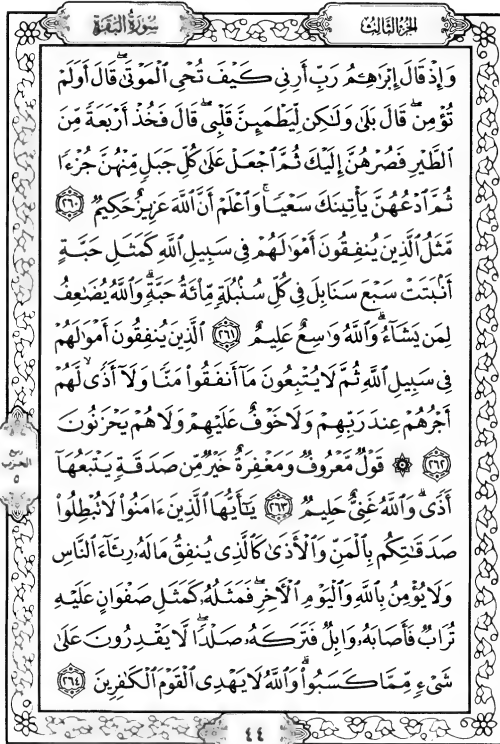 سُورَةُ البَقَرَةِ
الجزء الثالث
وَإِذْ قَالَ إِبْرَٰهِـۧمُ رَبِّ أَرِنِى كَيْفَ تُحْىِ ٱلْمَوْتَىٰۖ قَالَ أَوَلَمْ
تُؤْمِنۖ قَالَ بَلَىٰ وَلَٰكِن لِّيَطْمَئِنَّ قَلْبِىۖ قَالَ فَخُذْ أَرْبَعَةً مِّنَ
ٱلطَّيْرِ فَصُرْهُنَّ إِلَيْكَ ثُمَّ ٱجْعَلْ عَلَىٰ كُلِّ جَبَلٍ مِّنْهُنَّ جُزْءًا
ثُمَّ ٱدْعُهُنَّ يَأْتِينَكَ سَعْيًاۚ وَٱعْلَمْ أَنَّ ٱللَّهَ عَزِيزٌ حَكِيمٌ ٢٦٠
مَّثَلُ ٱلَّذِينَ يُنفِقُونَ أَمْوَٰلَهُمْ فِى سَبِيلِ ٱللَّهِ كَمَثَلِ حَبَّةٍ
أَنۢبَتَتْ سَبْعَ سَنَابِلَ فِى كُلِّ سُنۢبُلَةٍ مِّا۟ئَةُ حَبَّةٍۗ وَٱللَّهُ يُضَٰعِفُ
لِمَن يَشَآءُۗ وَٱللَّهُ وَٰسِعٌ عَلِيمٌ ٢٦١ ٱلَّذِينَ يُنفِقُونَ أَمْوَٰلَهُمْ
فِى سَبِيلِ ٱللَّهِ ثُمَّ لَا يُتْبِعُونَ مَآ أَنفَقُوا۟ مَنًّا وَلَآ أَذًىۙ لَّهُمْ
أَجْرُهُمْ عِندَ رَبِّهِمْ وَلَا خَوْفٌ عَلَيْهِمْ وَلَا هُمْ يَحْزَنُونَ
٢٦٢ ۞ قَوْلٌ مَّعْرُوفٌ وَمَغْفِرَةٌ خَيْرٌ مِّن صَدَقَةٍ يَتْبَعُهَآ
أَذًىۗ وَٱللَّهُ غَنِىٌّ حَلِيمٌ ٢٦٣ يَٰٓأَيُّهَا ٱلَّذِينَ ءَامَنُوا۟ لَا تُبْطِلُوا۟
صَدَقَٰتِكُم بِٱلْمَنِّ وَٱلْأَذَىٰ كَٱلَّذِى يُنفِقُ مَالَهُۥ رِئَآءَ ٱلنَّاسِ
وَلَا يُؤْمِنُ بِٱللَّهِ وَٱلْيَوْمِ ٱلْءَاخِرِۖ فَمَثَلُهُۥ كَمَثَلِ صَفْوَانٍ عَلَيْهِ
تُرَابٌ فَأَصَابَهُۥ وَابِلٌ فَتَرَكَهُۥ صَلْدًاۖ لَّا يَقْدِرُونَ عَلَىٰ
شَىْءٍ مِّمَّا كَسَبُوا۟ۗ وَٱللَّهُ لَا يَهْدِى ٱلْقَوْمَ ٱلْكَٰفِرِينَ ٢٦٤
ربع
الحزب
٥
٤٤